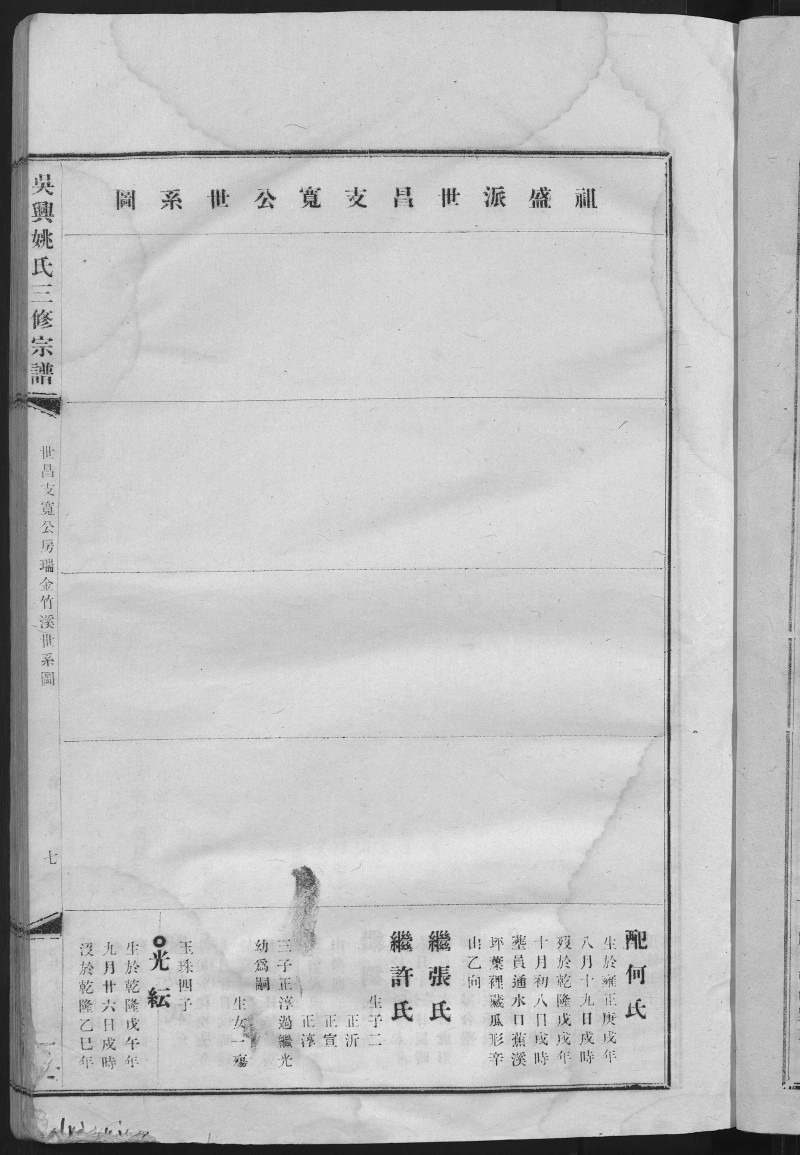 祖盛派世昌支寬公世系圖
配何氏
生於雍正庚戌年
八月十九日戌時
歿於乾隆戊戌年
十月初八日戌時
塟員通水口蕉溪
坪葉裡藏瓜形辛
山乙向
繼張氏
繼許氏
生子二
正沂
正宣
正淳
三子正淳過繼光
幼爲嗣
生女一殤
玉珠四子
光紜
生於乾隆戊午年
九月廿六日戌時
沒於乾隆乙巳年
吳興姚氏三修宗譜
世昌支寬公房瑞金竹溪世系圖
七